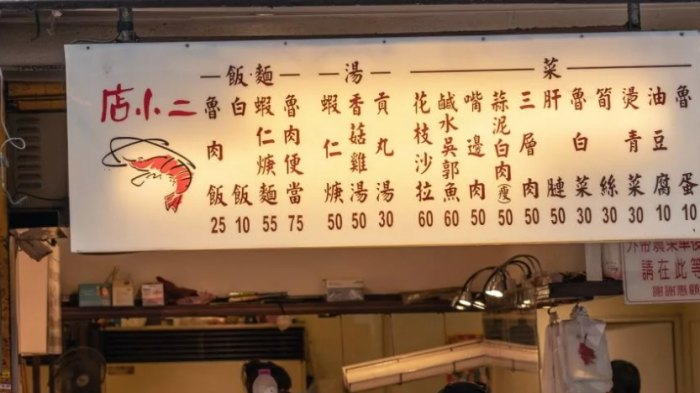 店小二
飯·麵
魯肉飯 25
白飯 10
蝦仁焿麵 55
魯肉便當 75
湯
蝦仁焿 50
香菇雞湯 50
貢丸湯 30
菜
花枝沙拉 60
鹹水吳郭魚 60
嘴邊肉 50
蒜泥白肉(瘦) 50
三層肉 50
肝 50
魯白菜 30
筍絲 30
燙青菜 30
油豆腐 10
魯蛋 10
請在此等
謝謝惠顧